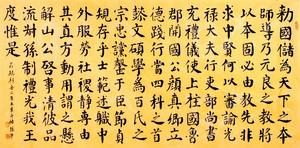 勅國儲為天下之本
師導乃元良之教將
以本固必由教先非
求中賢何以審諭光
祿大夫行吏部尚書
充禮儀使上柱國魯
郡開國公顏真卿立
德踐行當四科之首
懿文碩學為百氏之
宗忠讜罄于臣節貞
規存乎士範述職中
外服勞社稷靜專由
其直方動用謂之懸
解山公啟事清彼品
流叔孫制禮光我王
度惟是